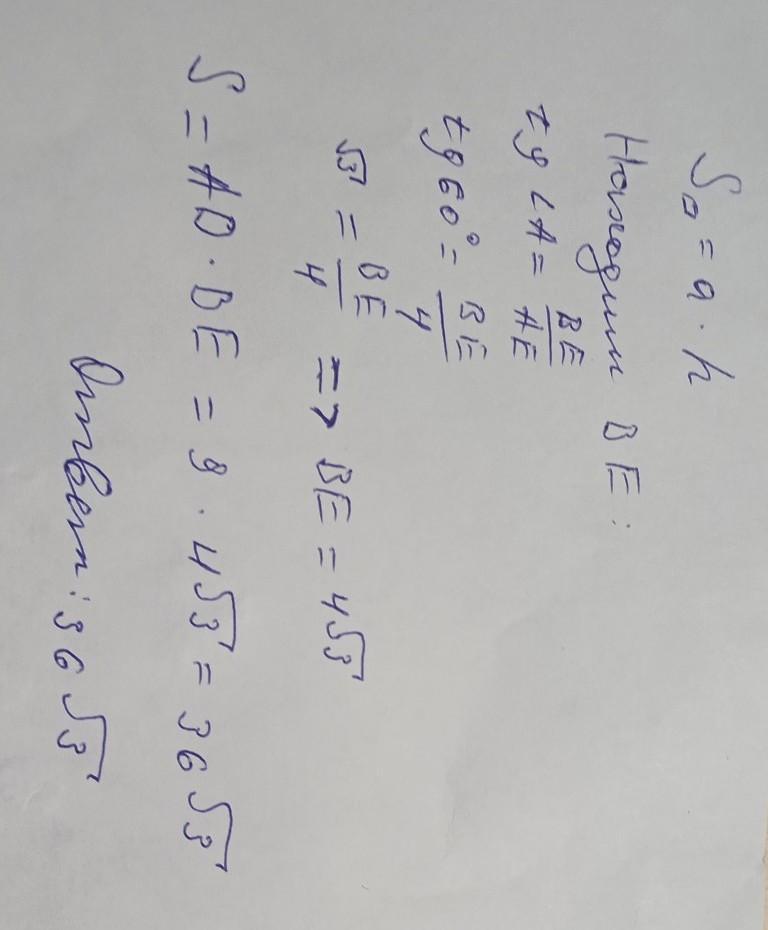 S▱ = a · h
Находим BE:
tg ∠A = BE/AE
tg 60° = BE/4
√3 = BE/4 => BE = 4√3
S = AD · BE = 9 · 4√3 = 36√3
Ответ: 36√3